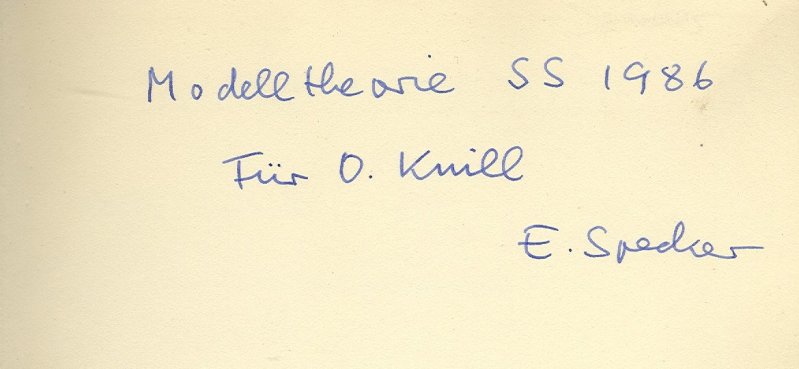 Modelltheorie SS 1986
Für O. Knill
E. Specker